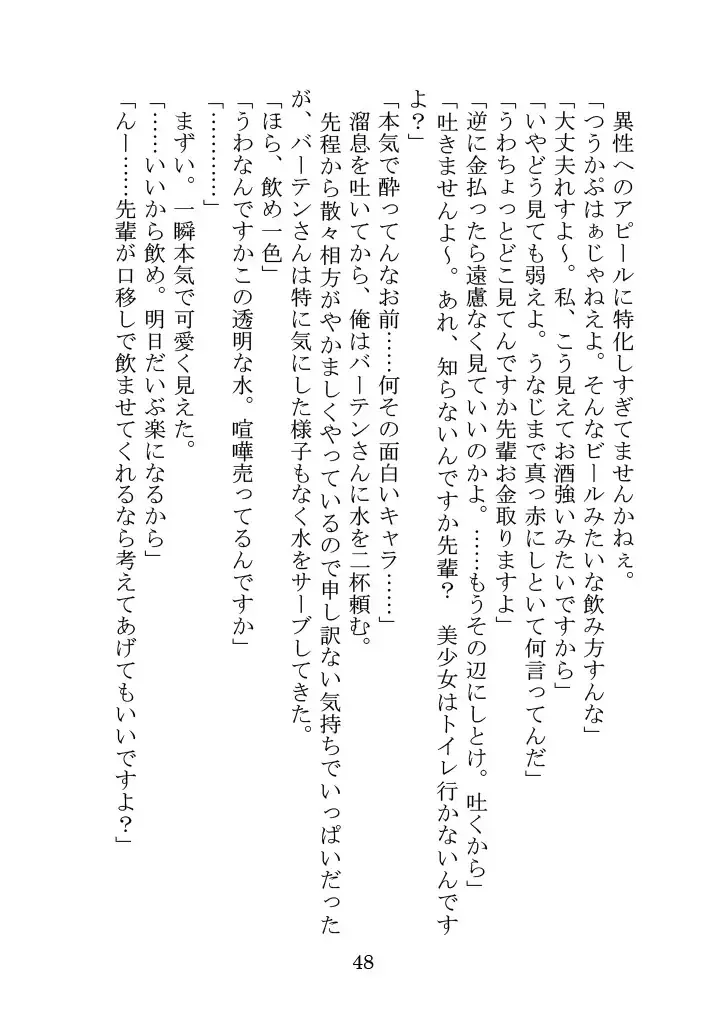 異性へのアピールに特化しすぎてませんかねぇ。
「つうかぷはぁじゃねえよ。そんなビールみたいな飲み方すんな」
「大丈夫れすよ～。私、こう見えてお酒強いみたいですから」
「いやどう見ても弱えよ。うなじまで真っ赤にしといて何言ってんだ」
「うわちょっとどこ見てんですか先輩お金取りますよ」
「逆に金払ったら遠慮なく見ていいのかよ。……もうその辺にしとけ。吐くから」
「吐きませんよ～。あれ、知らないんですか先輩？　美少女はトイレ行かないんです
よ？」
「本気で酔ってんなお前……何その面白いキャラ……」
溜息を吐いてから、俺はバーテンさんに水を二杯頼む。
先程から散々相方がやかましくやっているので申し訳ない気持ちでいっぱいだった
が、バーテンさんは特に気にした様子もなく水をサーブしてきた。
「ほら、飲め一色」
「うわなんですかこの透明な水。喧嘩売ってるんですか」
「…………」
まずい。一瞬本気で可愛く見えた。
「……いいから飲め。明日だいぶ楽になるから」
「んー……先輩が口移しで飲ませてくれるなら考えてあげてもいいですよ？」
48